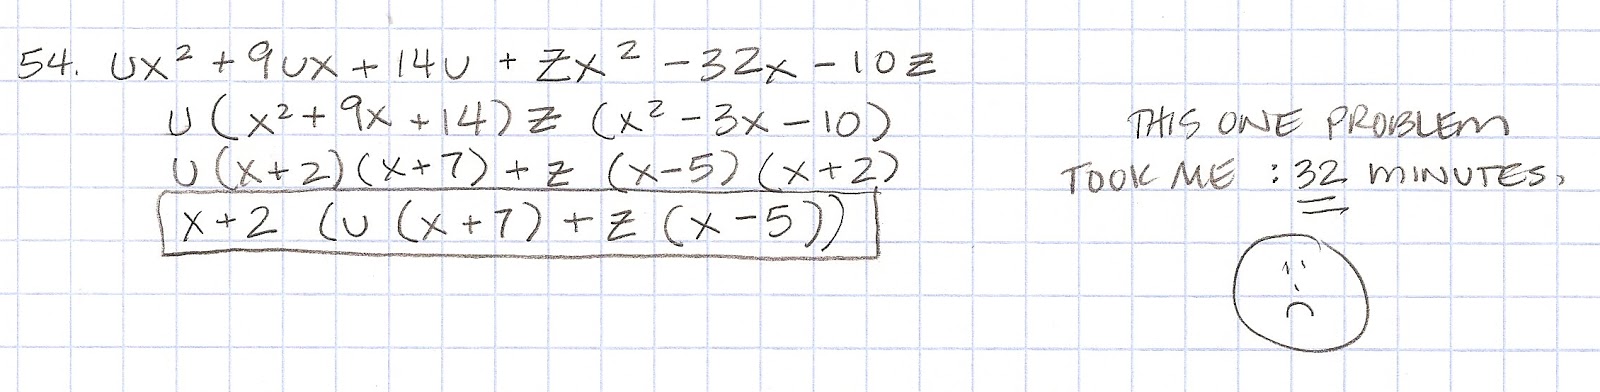 54. Ux² + 9Ux + 14U + Zx² - 3Zx - 10Z
U (x² + 9x + 14) Z (x² - 3x - 10)
U (x+2) (x+7) + Z (x-5) (x+2)
x+2 (U (x+7) + Z (x-5))
THIS ONE PROBLEM
TOOK ME : 32 MINUTES.